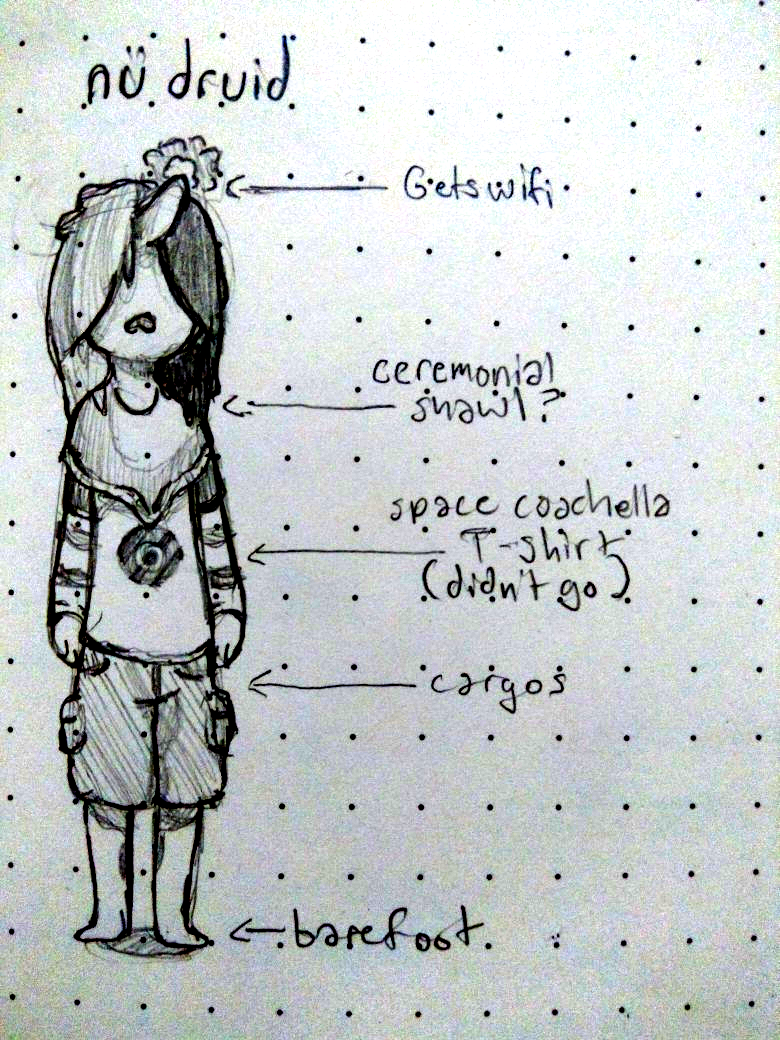 nü druid
Gets wifi
ceremonial
shawl?
space coachella
T-shirt
(didn't go)
cargos
barefoot